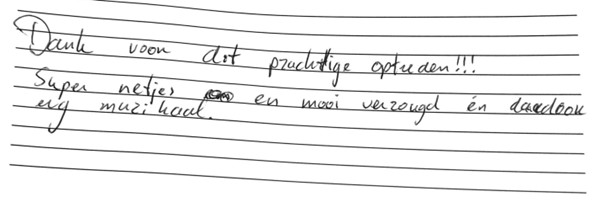 Dank voor dit prachtige optreden!!!
Super netjes en mooi verzorgd én daardoor
erg muzikaal.